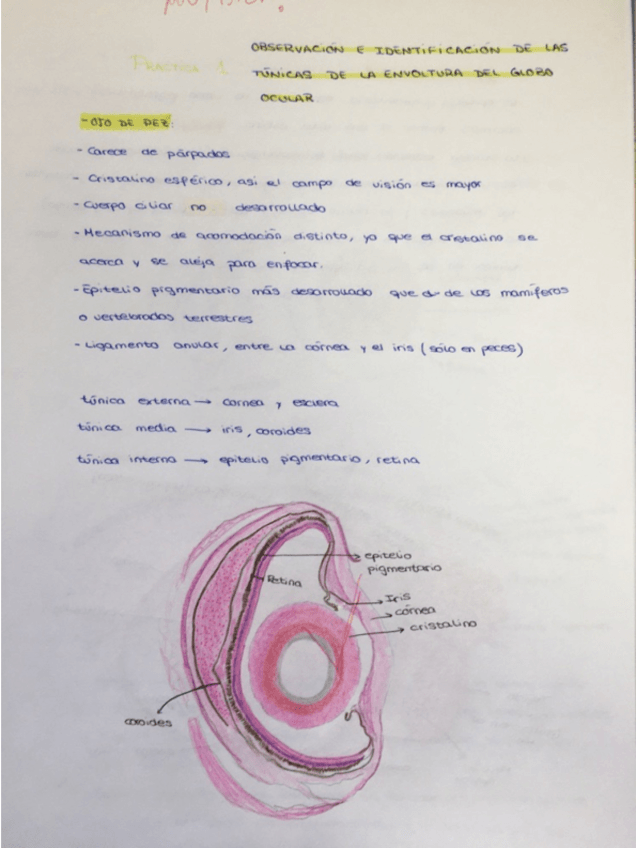 PRÁCTICA 1.
OBSERVACIÓN E IDENTIFICACIÓN DE LAS
TÚNICAS DE LA ENVOLTURA DEL GLOBO
OCULAR
- OJO DE PEZ:
- Carece de párpados
- Cristalino esférico, asi el campo de visión es mayor
- Cuerpo ciliar no desarrollado
- Mecanismo de acomodación distinto, ya que el cristalino se
acerca y se aleja para enfocar.
- Epitelio pigmentario más desarrollado que el de los mamíferos
o vertebrados terrestres
- Ligamento anular, entre la córnea y el iris (sólo en peces)
túnica externa → cornea y esclera
túnica media → iris, coroides
túnica interna → epitelio pigmentario, retina
epitelio
pigmentario
Retina
Iris
córnea
cristalino
coroides